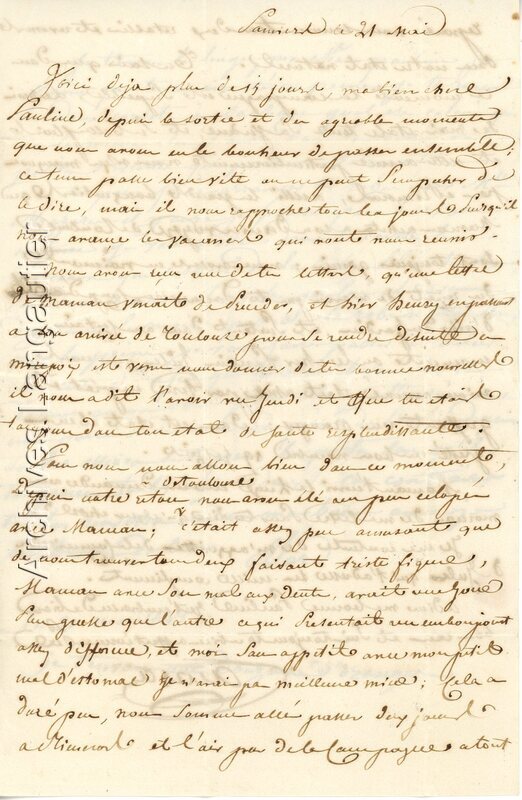 Samedi le 21 Mai
Voici deja plus de 15 jours, ma bien chere
Pauline, depuis la sortie et des agreable moments
que nous avons eu le bonheur de passer ensemble;
ce tems passe bien vite on ne peut s'empecher de
le dire, mais il nous rapproche tous les jours
les vacances qui vont nous reunir.
Nous avons reçu une de tes lettres, qu'une lettre
de Maman venait de, et hier Henry en passant
a son arrivée de Toulouse pour se rendre de suite a
mirepoix est venu nous donner de tes bonnes nouvelles
il nous a dit t'avoir vu Jeudi et que tu etais
toujours dans ton etat de santé resplendissante.
Pour nous nous allons bien dans ce moment,
Depuis notre retour de Toulouse nous avons été un peu eclopés
avec Maman; c'était assez peu amusant que
de nous trouver tous deux faisant triste figure,
Maman avec son mal aux dents, avait une joue
plus grosse que l'autre ce qui presentait un embonpoint
assez difforme, et moi sans appetit avec mon petit
mal d'estomac je n'avai pas meilleure mine; Cela a
duré peu, nous sommes allé passer deux jours
a et l'air pur de la Campagne a tout
Archives Langautier